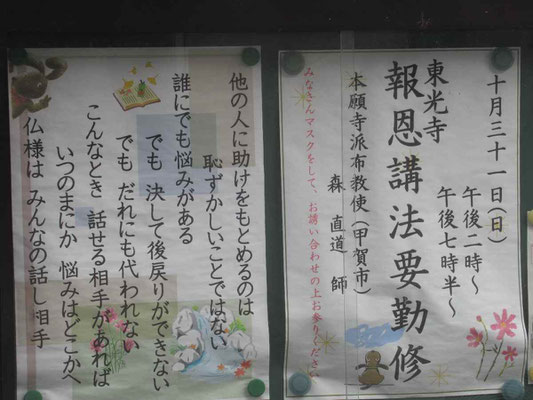 十月三十一日(日)
午後二時～
午後七時半～
報恩講法要勤修
東光寺
本願寺派布教使(甲賀市)
森 直道 師
みなさんマスクをして、お誘い合わせの上お参りください
他の人に助けをもとめるのは
恥ずかしいことではない
誰にでも悩みがある
でも 決して後戻りができない
でも だれにも代われない
こんなとき 話せる相手があれば
いつのまにか 悩みはどこかへ
仏様は みんなの話し相手